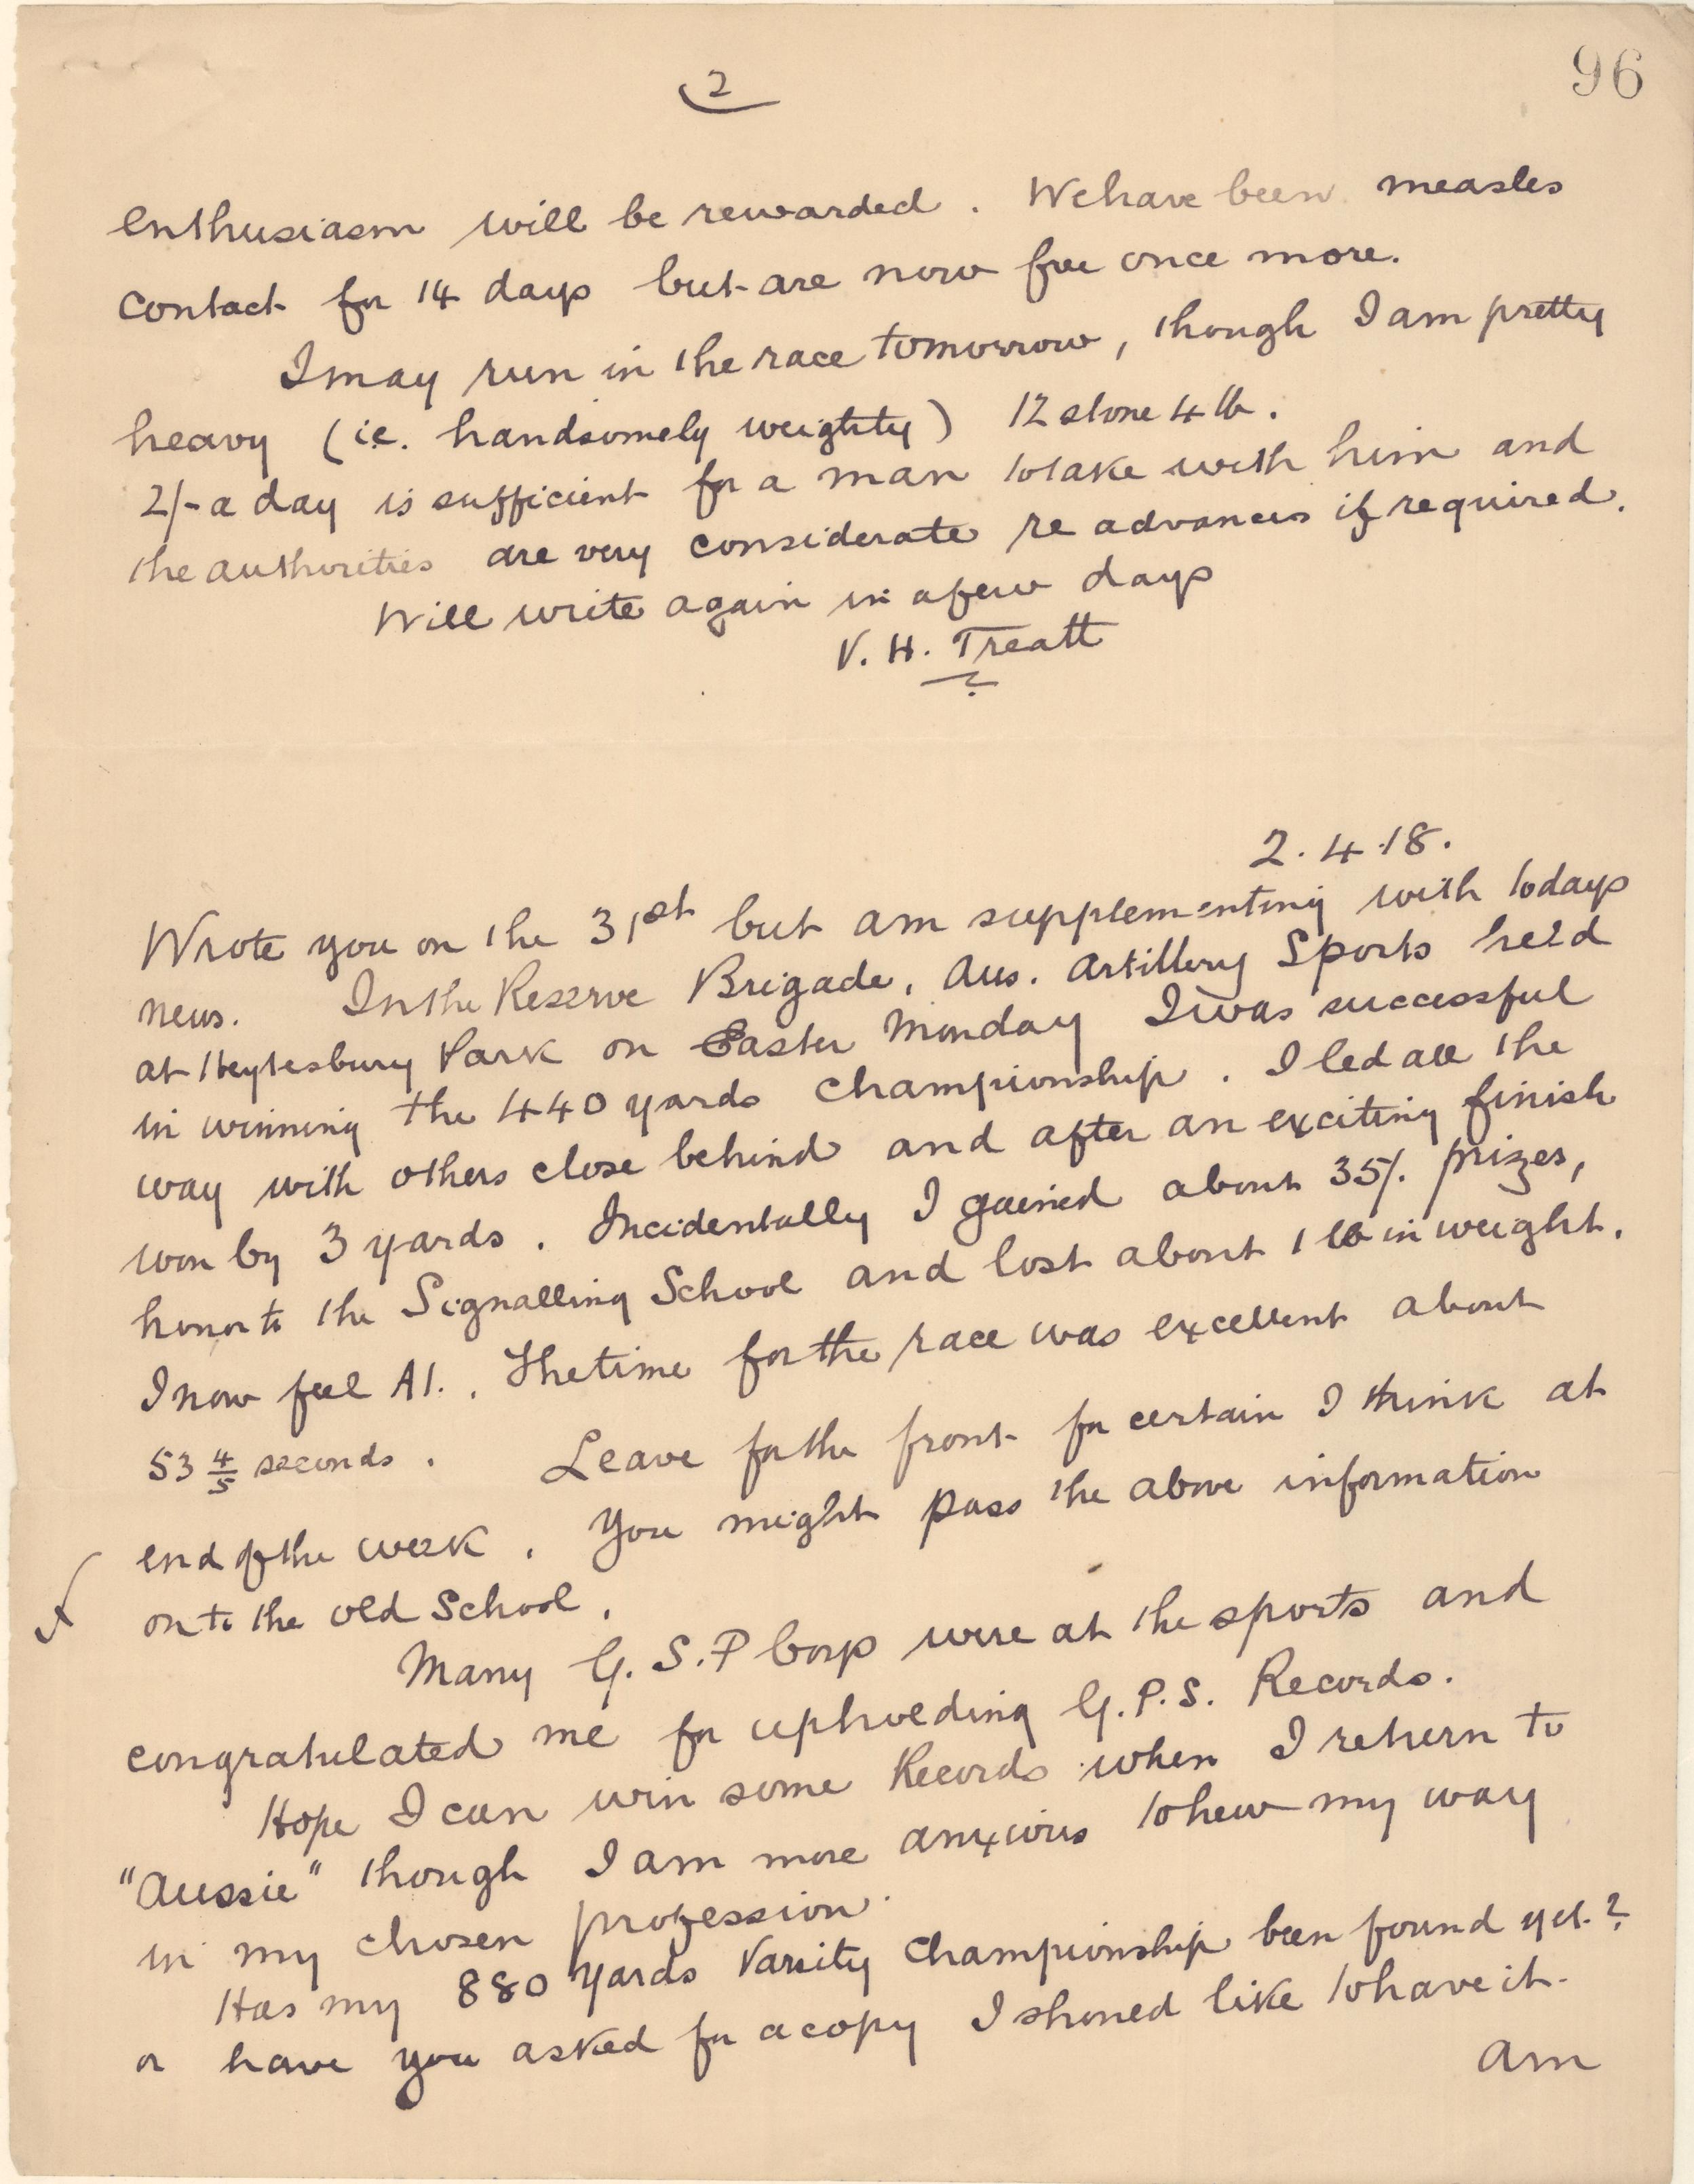 2
96
enthusiasm will be rewarded. We have been measles
contact for 14 days but are now free once more.
I may run in the race tomorrow, though I am pretty
heavy (i.e. handsomely weighty) 12 stone 4 lb.
2/- a day is sufficient for a man to take with him and
the authorities are very considerate re advances if required.
Will write again in a few days
V. H. Treatt
2.4.18.
Wrote you on the 31st but am supplementing with todays
news. In the Reserve Brigade, Aus. Artillery Sports held
at Heytesbury Park on Easter Monday I was successful
in winning the 440 yards championship. I led all the
way with others close behind and after an exciting finish
won by 3 yards. Incidentally I gained about 35/. prizes,
honor to the Signalling School and lost about 1 lb in weight.
I now feel A1. The time for the race was excellent about
53 4/5 seconds. Leave for the front for certain I think at
end of the week. You might pass the above information
on to the old School.
Many G.S.P boys were at the sports and
congratulated me for upholding G.P.S. Records.
Hope I can win some Records when I return to
"Aussie" though I am more anxious to hew my way
in my chosen profession.
Has my 880 yards Varsity Championship been found yet?
or have you asked for a copy I should like to have it.
am